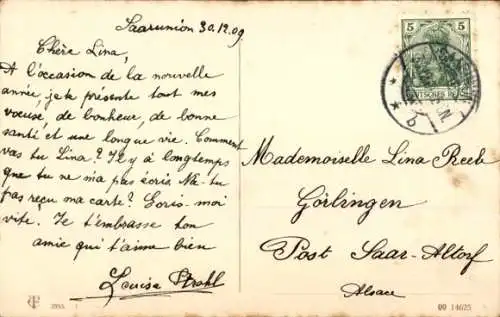 Saarunion 30.12.09
Chère Lina,
A l'occasion de la nouvelle
année, je te présente tout mes
vœuse, de bonheur, de bonne
santé et une longue vie. Comment
vas tu Lina? Il y à longtemps
que tu ne m'a pas écris. Na-tu
pas reçu ma carte? Ecris-moi
vite. Je t'embrasse ton
amie qui t'aime bien
Louisa Strohl
5 5
DEUTSCHES
Mademoiselle Lina Reeb
Görlingen
Post Saar-Altorf
Alsace
09 14625